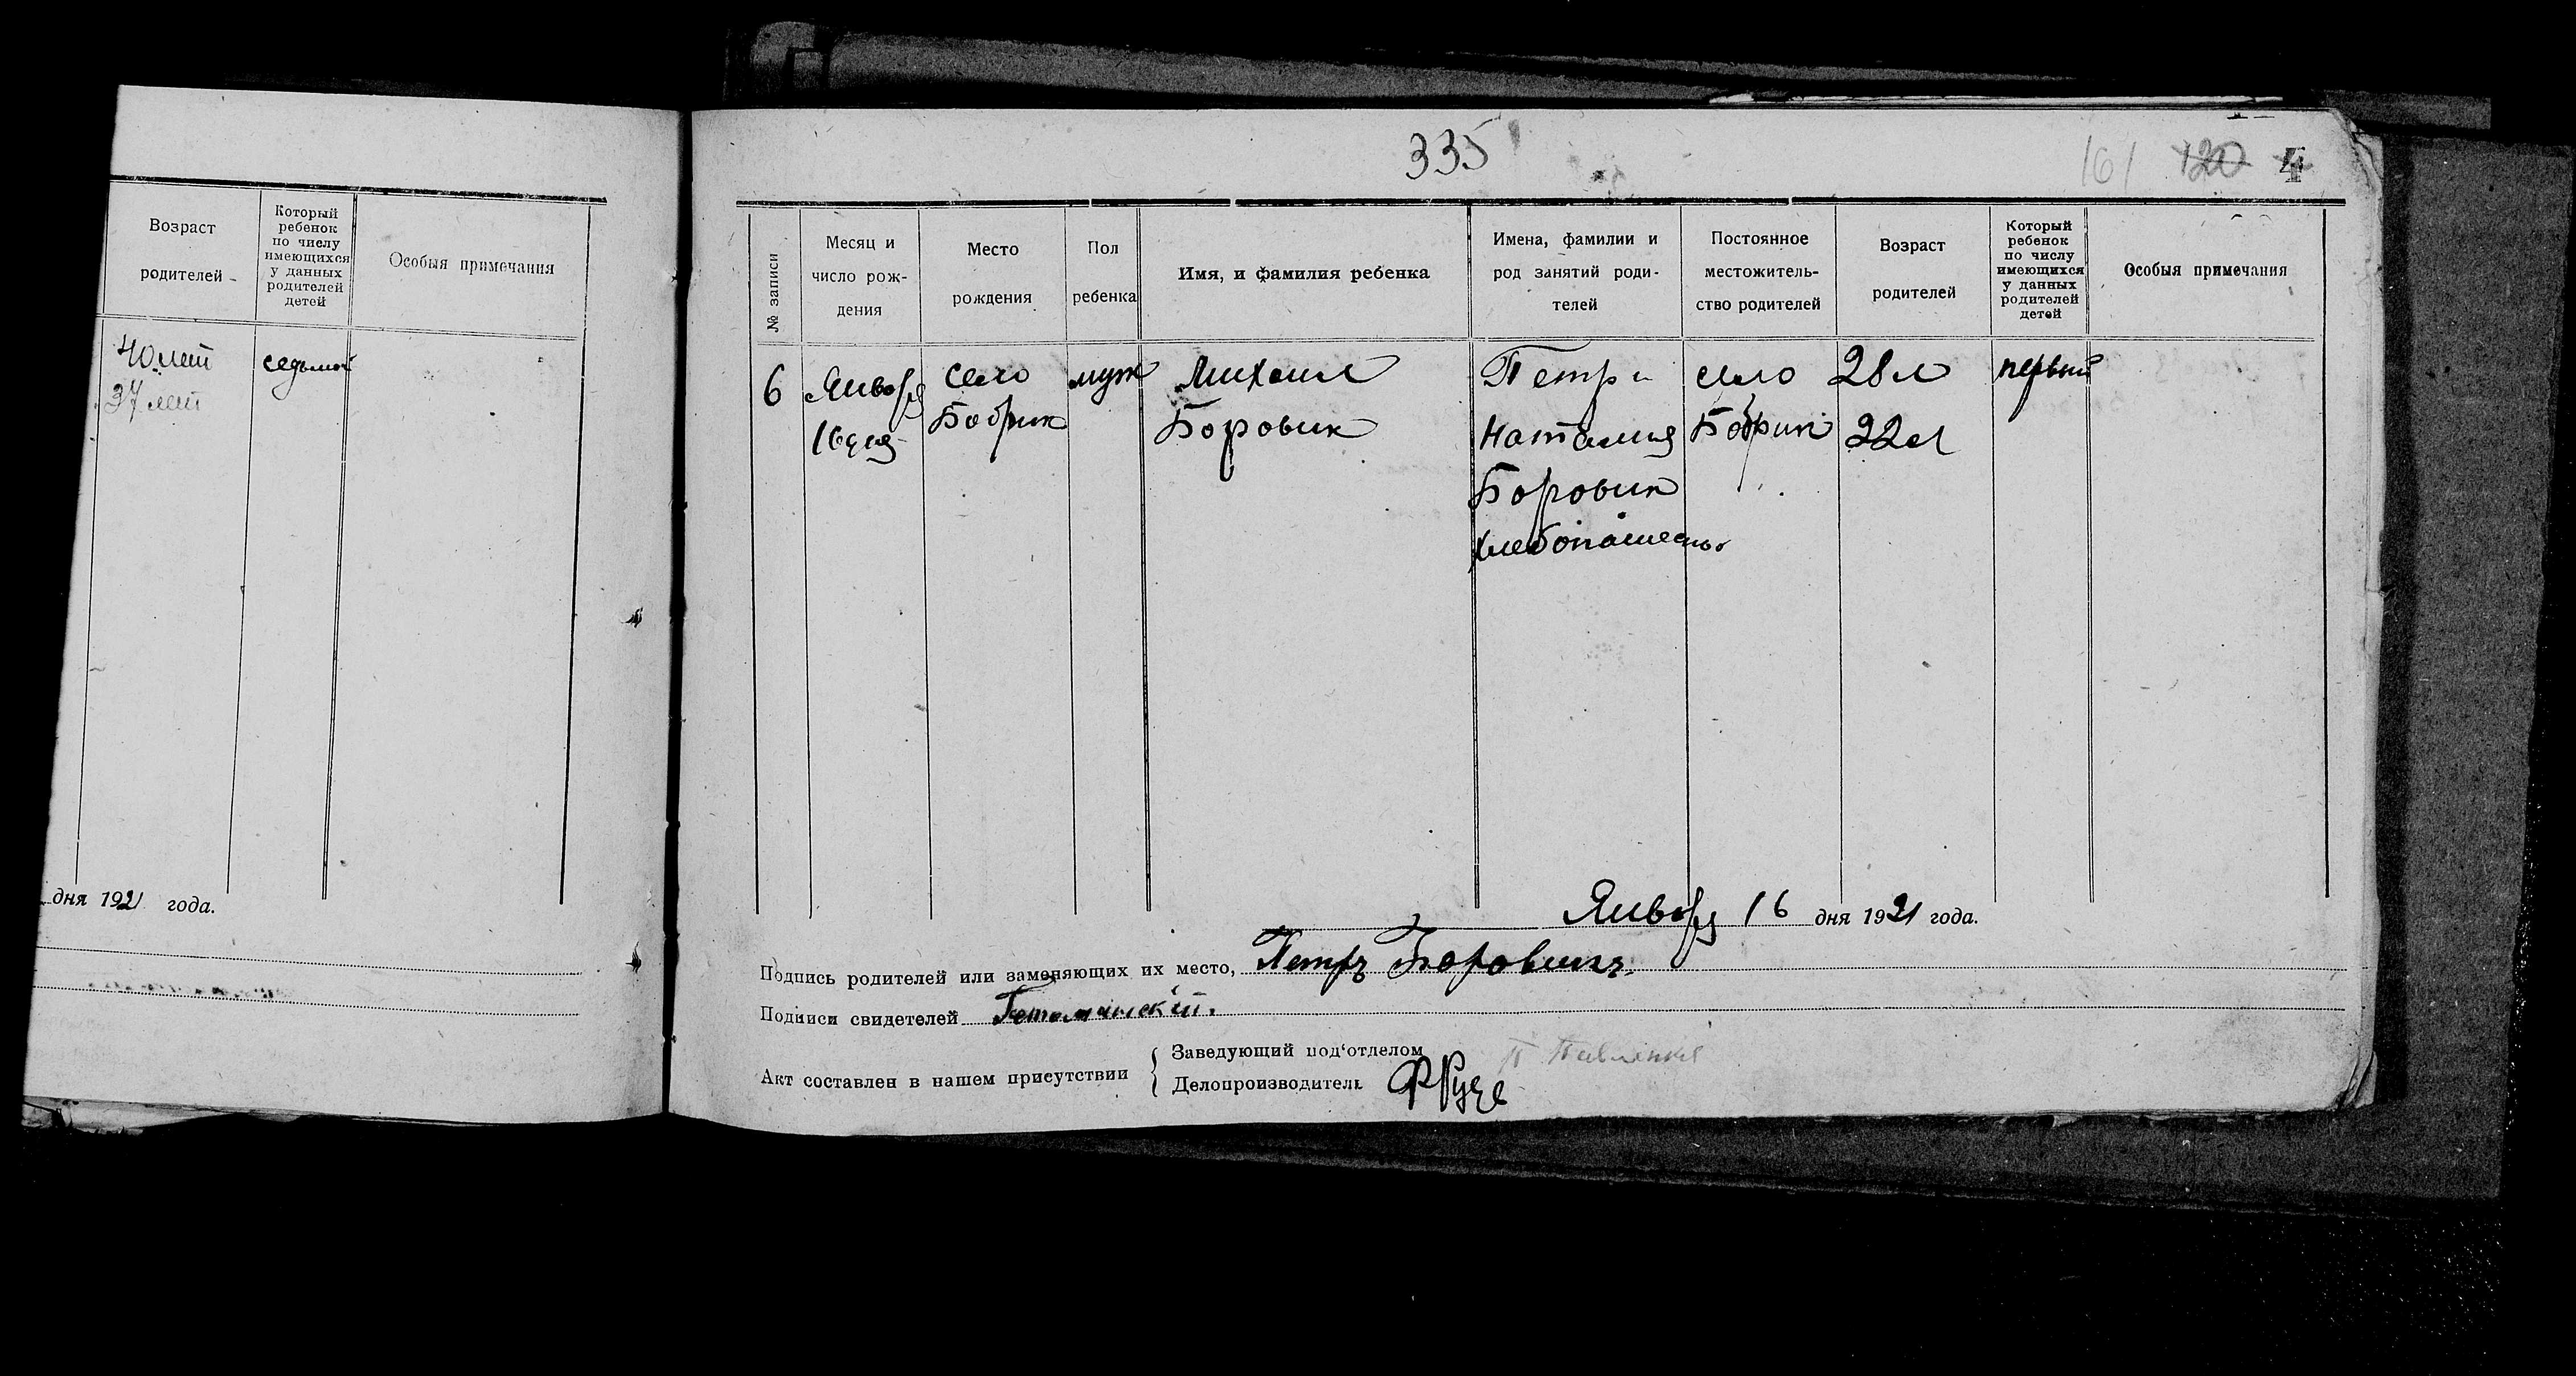 335
161 120 4
Возраст
родителей
Который
ребенок
по числу
имеющихся
у данных
родителей
детей
Особыя примечания
40 лет
37 лет
седьмой
дня 1921 года.
№ записи
Месяц и
число рож-
дения
Место
рождения
Пол
ребенка
Имя, и фамилия ребенка
Имена, фамилии и
род занятий роди-
телей
Постоянное
местожитель-
ство родителей
Возраст
родителей
Который
ребенок
по числу
имеющихся
у данных
родителей
детей
Особыя примечания
6
Января
16 дня
село
Бобрик
муж
Михаил
Боровик
Петр и
Наталия
Боровик
хлебопашество
село
Бобрик
28 л
22 л
первый
Января 16 дня 1921 года.
Подпись родителей или заменяющих их место, Петръ Боровикъ.
Подписи свидетелей
Акт составлен в нашем присутствии
Заведующий под‘отделом
Делопроизводитель